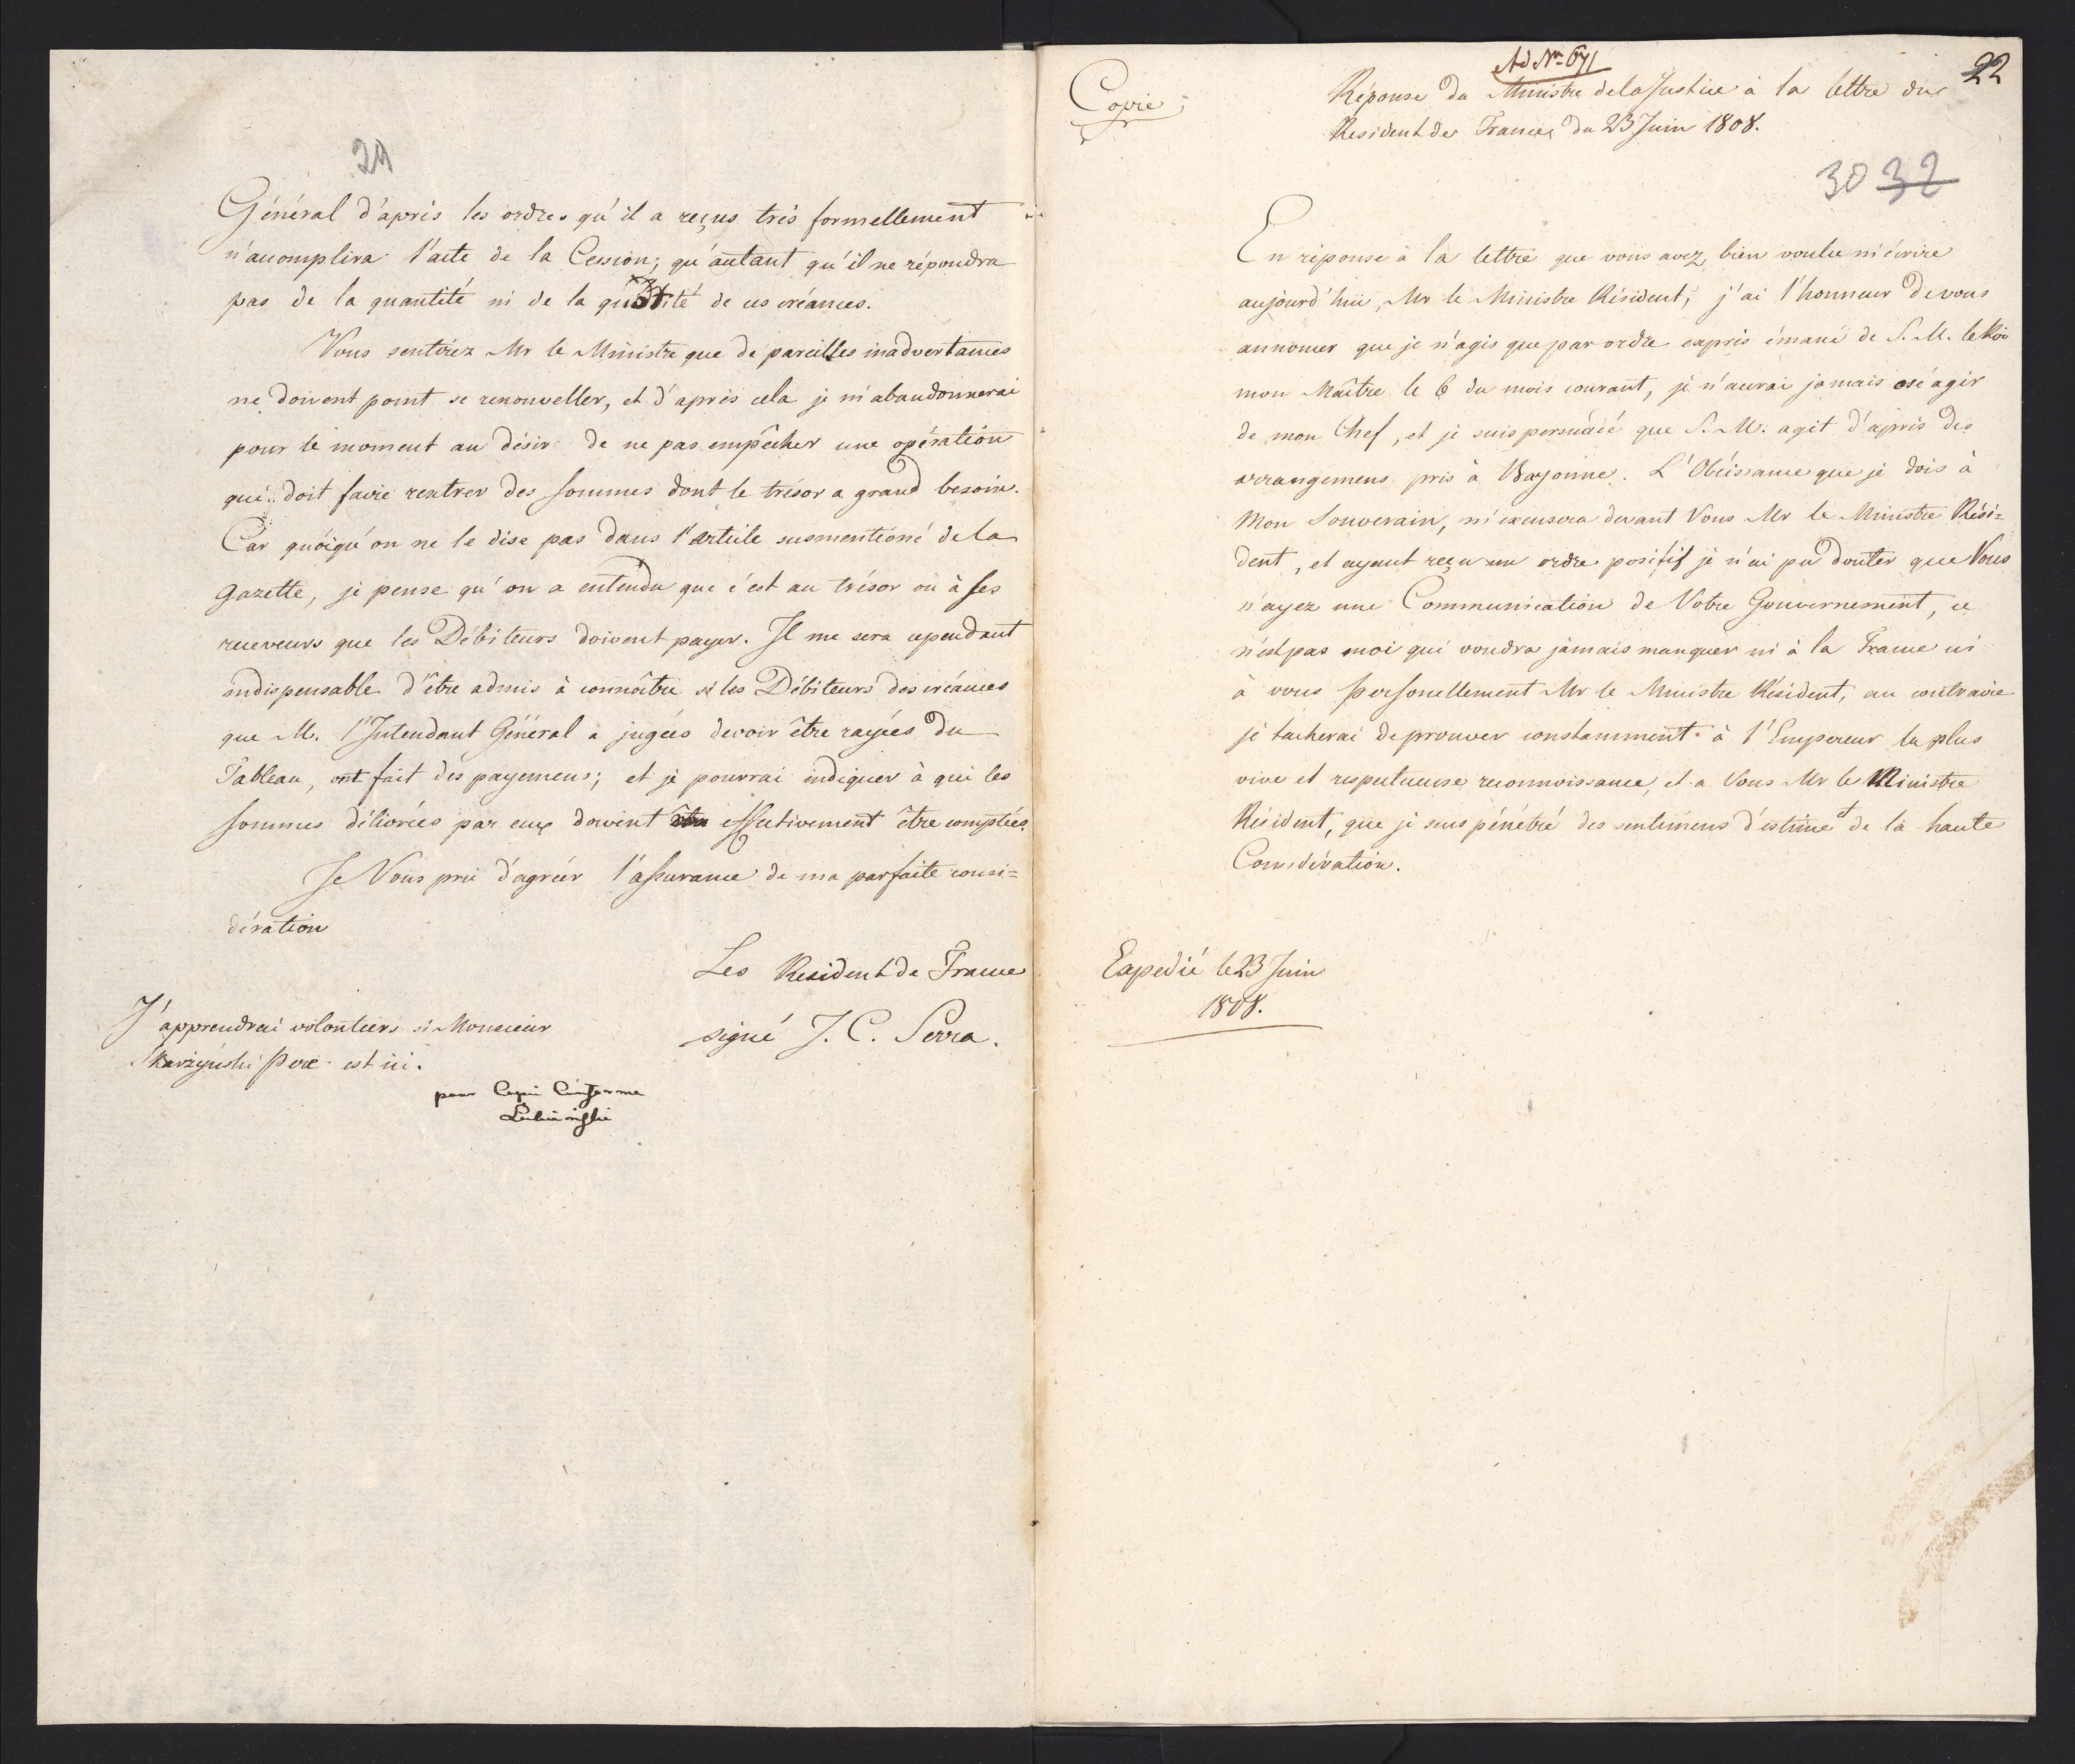 29
Général d'après les ordres qu'il a reçus très formellement
n'accomplira l'acte de la Cession, qu'autant qu'il ne répondra
pas de la quantité ni de la quotité de ces créances.
Vous sentirez Mr le Ministre que de pareilles inadvertances
ne doivent point se renouveller, et d'après cela je m'abandonnerai
pour le moment au désir de ne pas empêcher une opération
qui doit faire rentrer des sommes dont le trésor a grand besoin.
Car quoiqu'on ne le dise pas dans l'article susmentioné de la
gazette, je pense qu'on a entendu que c'est au trésor ou à ses
receveurs que les Débiteurs doivent payer. Il me sera cependant
indispensable d'être admis à connoître si les Débiteurs des créances
que M. l'Intendant Général a jugées devoir être rayées du
Tableau, ont fait des payemens; et je pourrai indiquer à qui les
sommes délivrées par eux doivent effectivement être comptées.
Je Vous prie d'agréer l'assurance de ma parfaite consi=
dération
Les Resident de France
signé J. C. Serra.
J'apprendrai volontiers si Monsieur
Skarżyński Pere est ici.
pour Copie Conforme
Ad Nr 671
22
Copie
Réponse du Ministre de la Justice à la lettre du
Resident de France, du 23 Juin 1808.
30 32
En réponse à la lettre que vous avez bien voulu m'écrire
aujourd'hui, Mr le Ministre Résident, j'ai l'honneur de vous
annoncer que je n'agis que par ordre exprès émané de S. M. le Roi
mon Maître le 6 du mois courant, je n'aurai jamais osé agir
de mon Chef, et je suis persuadé que S. M. agit d'après des
arrangemens pris à Bayonne. L'Obéissance que je dois à
Mon Souverain, m'excusera devant Vous Mr le Ministre Rési=
dent, et ayant reçu un ordre positif je n'ai pu douter que Vous
n'ayez une Communication de Votre Gouvernement, ce
n'est pas moi qui voudra jamais manquer ni à la France ni
à vous personellement Mr le Ministre Résident, au contraire
je tacherai de prouver constamment à l'Empereur la plus
vive et respectueuse reconnoissance, et a Vous Mr le Ministre
Résident, que je suis pénétré des sentimens d'estime et de la haute
Considération.
Expedié le 23 Juin
1808.